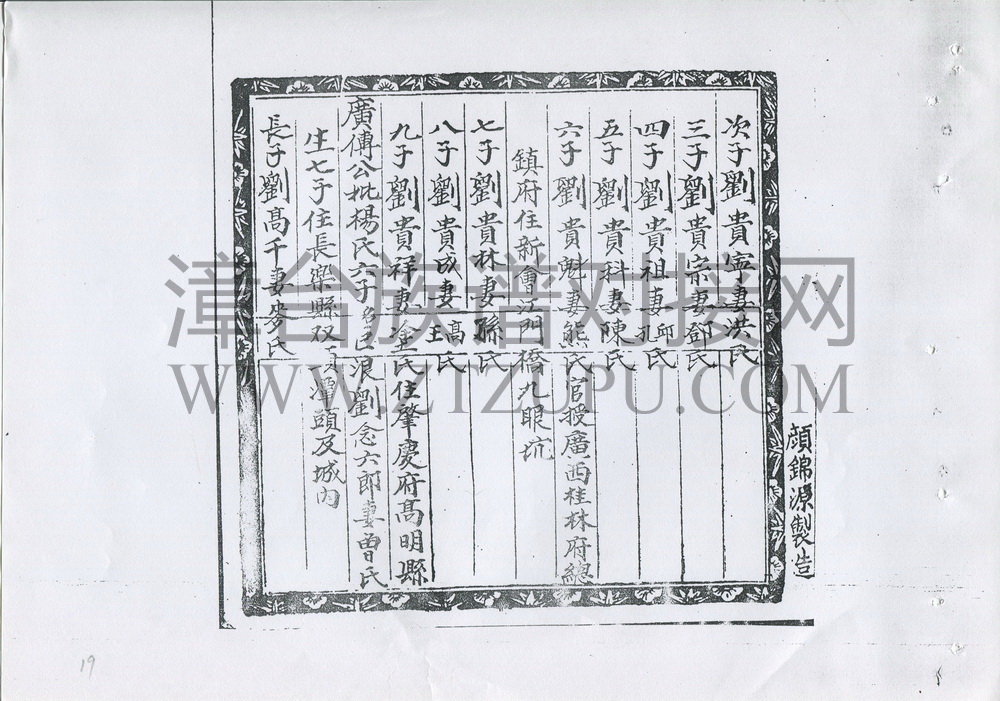 次子劉貴寧妻洪氏
三子劉貴宗妻鄧氏
四子劉貴祖妻邱孔氏
五子劉貴科妻陳氏
六子劉貴魁妻熊氏官授廣西桂林府總
鎮府住新會江門橋九眼坑
七子劉貴林妻孫氏
八子劉貴成妻高王氏
九子劉貴祥妻塗氏住肇慶府高明縣
廣傳公枇楊氏六子名巨浪劉念六郎妻曽氏
生七子住長樂縣双頭潭頭及城內
長子劉高千妻麥氏
顔錦源製造
漳台族谱对接网
WWW.ZTZUPU.COM
19